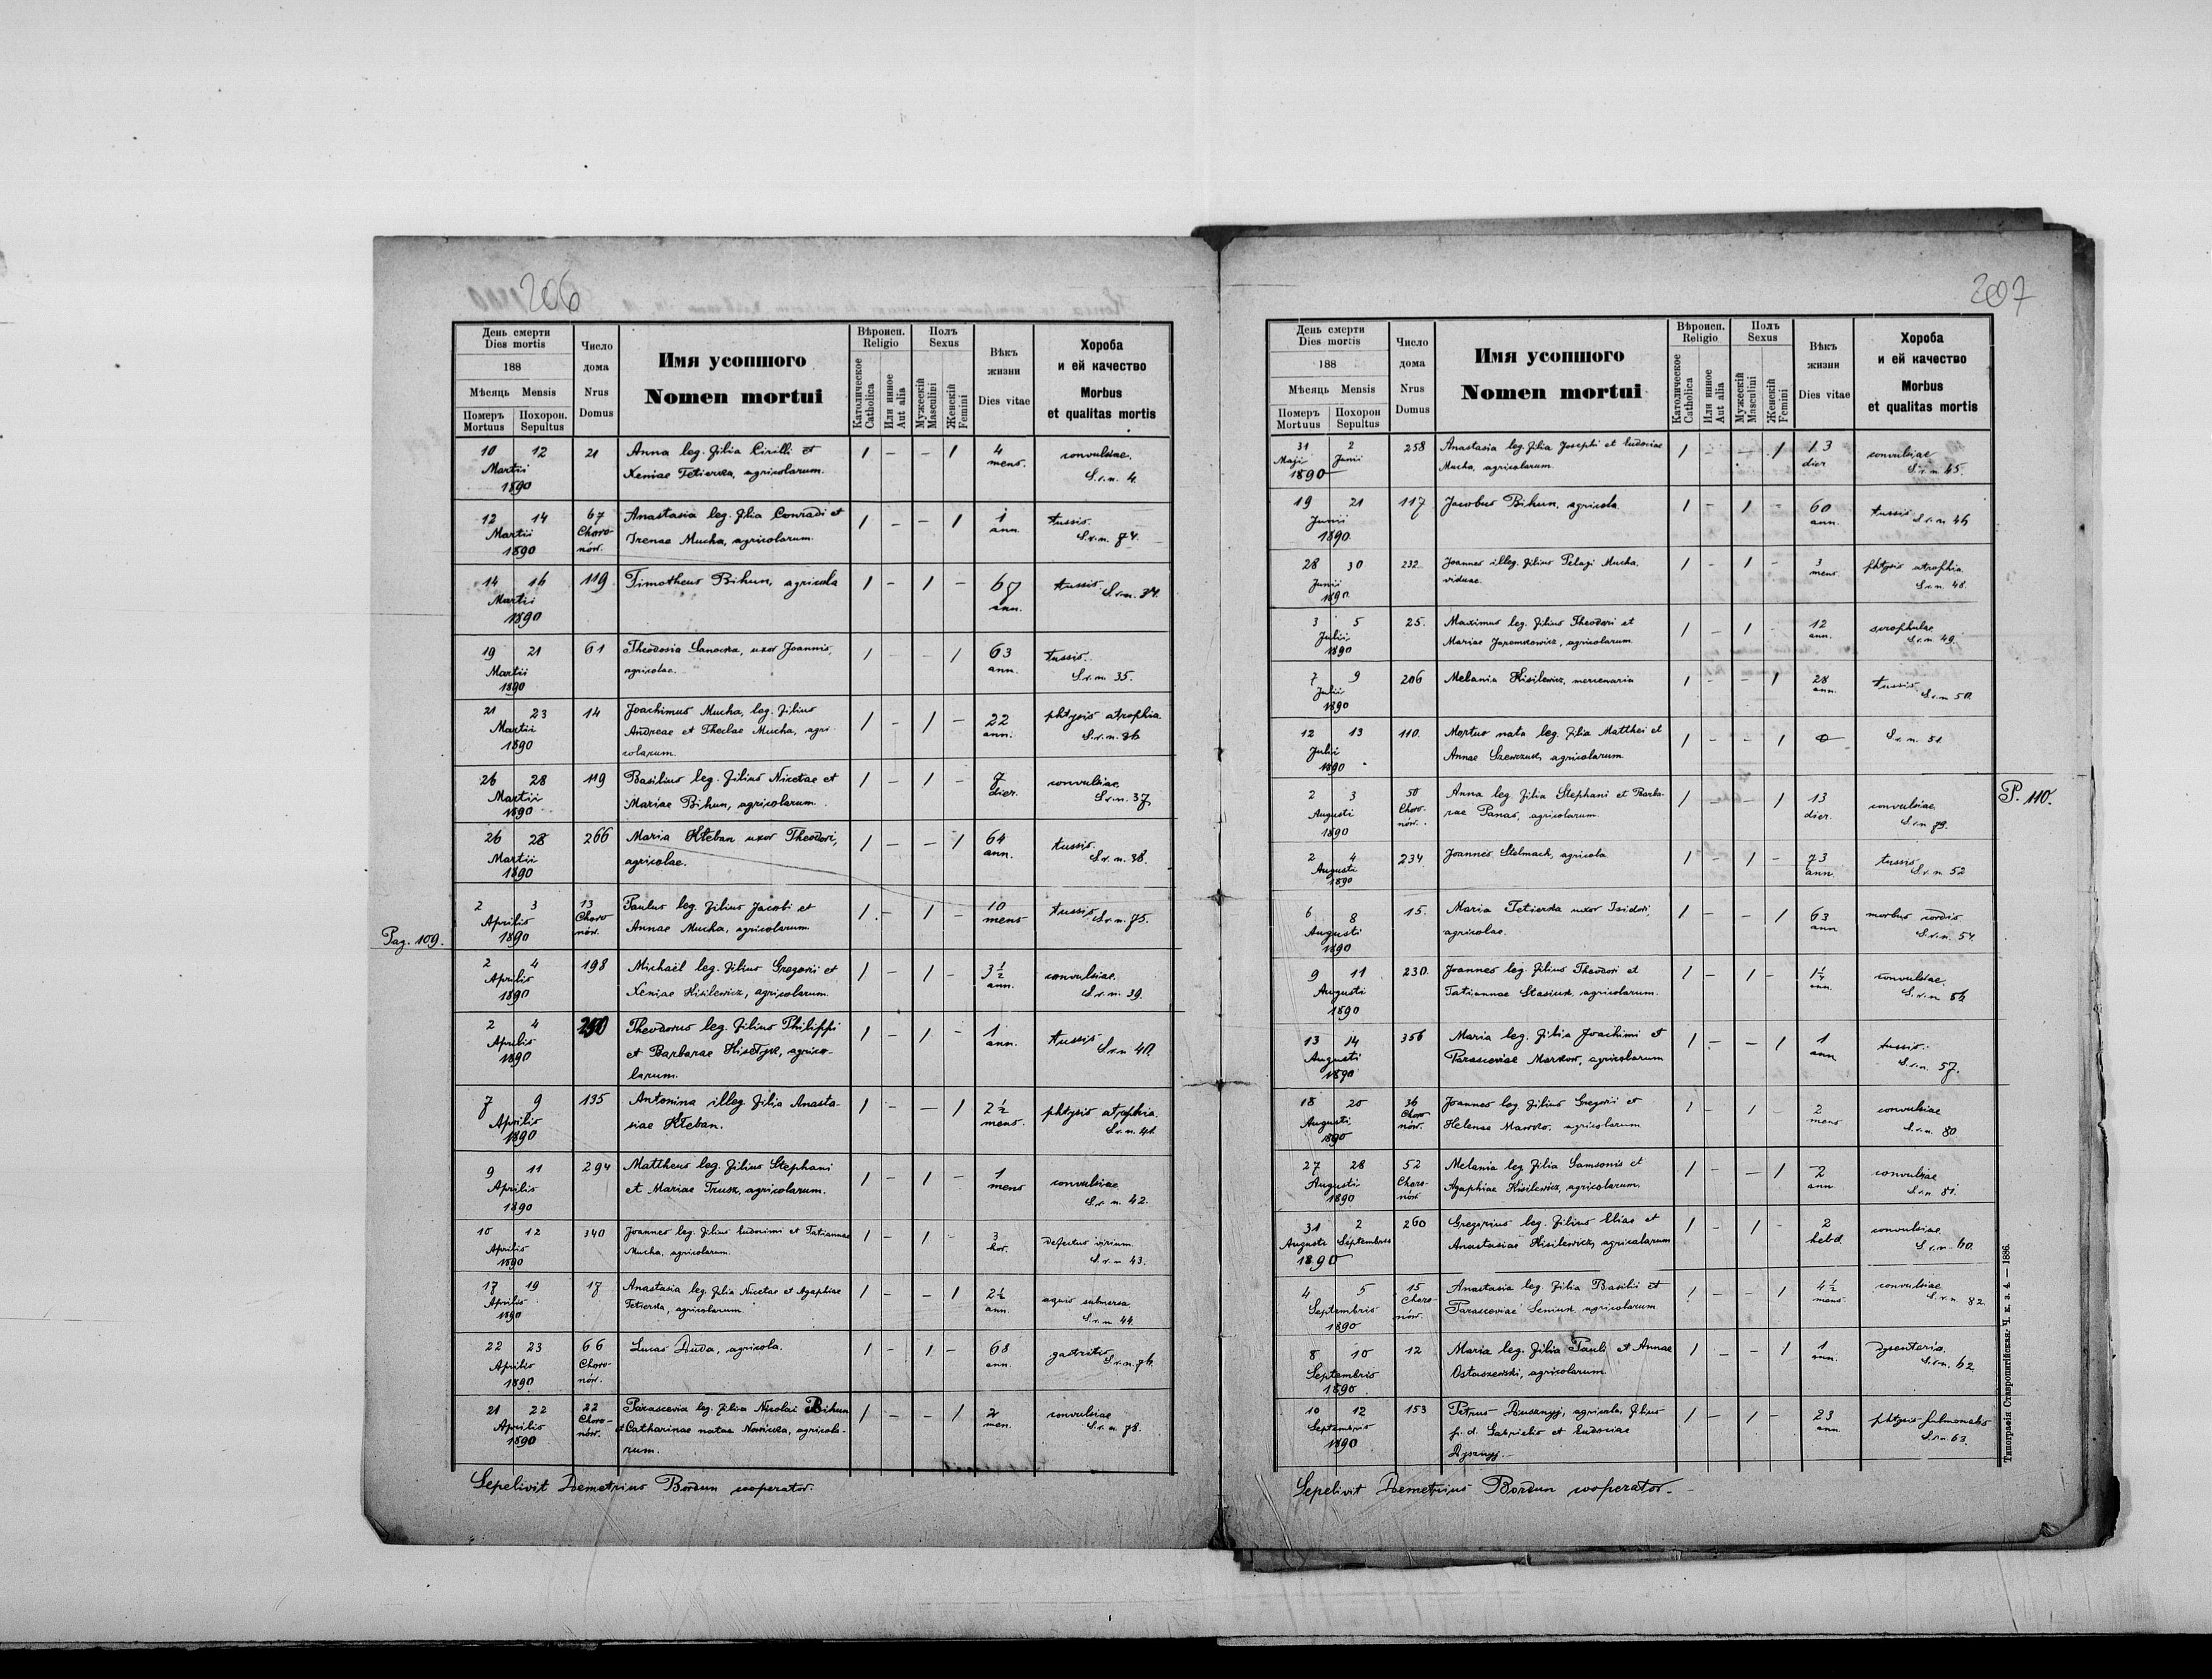 206
День смерти
Dies mortis
188
Мѣсяць Mensis
Померъ Похорон.
Mortuus Sepultus
Число
дома
Nrus
Domus
Имя усопшого
Nomen mortui
Вѣроисп.
Religio
Католическое
Catholica
Или инное
Aut alia
Полъ
Sexus
Мужескій
Masculini
Женскій
Femini
Вѣкъ
жизни
Dies vitae
Хороба
и ей качество
Morbus
et qualitas mortis
10 12 21 Anna leg. filia Cirilli et 1 – – 1 4 convulsiae.
Martii Xeniae Tetierka, agricolarum. mens. S.r.n. 4.
1890
12 14 67 Anastasia leg. filia Conradi et 1 – – 1 1 tussis.
Martii Choro- Irenae Mucha, agricolarum. ann. S.r.n. 74.
1890 nów.
14 16 119 Timotheus Bihun, agricola 1 – 1 – 67 tussis.
Martii ann. S.r.n. 34.
1890
19 21 61 Theodosia Sanocka, uxor Joannis, 1 – – 1 63 tussis.
Martii agricolae. ann. S.r.n. 35.
1890
21 23 14 Joachimus Mucha, leg. filius 1 – 1 – 22 phtysis atrophia.
Martii Andreae et Theclae Mucha, agri- ann. S.r.n. 36
1890 colarum.
26 28 119 Basilius leg. filius Nicetae et 1 – 1 – 7 convulsiae.
Martii Mariae Bihun, agricolarum. dier. S.r.n. 37
1890
26 28 266 Maria Kłeban uxor Theodori, 1 – – 1 64 tussis.
Martii agricolae. ann. S.r.n. 38.
1890
2 3 13 Paulus leg. filius Jacobi et 1 – 1 – 10 tussis
Aprilis Choro Annae Mucha, agricolarum. mens S.r.n. 75.
1890 nów.
Pag. 109.
2 4 198 Michaël leg. filius Gregorii et 1 – 1 – 3½ convulsiae.
Aprilis Xeniae Kisilewicz, agricolarum. ann. S.r.n. 39.
1890
2 4 Theodorus leg. filius Philippi 1 – 1 – 1 tussis
Aprilis et Barbarae, agrico- ann. S.r.n. 40.
1890 larum.
7 9 135 Antonina illeg. filia Anasta- 1 – – 1 2½ phtysis atrophia.
Aprilis siae Kłeban. mens. S.r.n. 41.
1890
9 11 294 Mattheus leg. filius Stephani 1 – 1 – 1 convulsiae
Aprilis et Mariae Trusz, agricolarum. mens S.r.n. 42.
1890
10 12 340 Joannes leg. filius Eudonimi et Tatiannae 1 – 1 – 3 defectus virium.
Aprilis Mucha, agricolarum. hor. S.r.n. 43.
1890
17 19 17 Anastasia leg. filia Nicetae et Agaphiae 1 – – 1 2½ aquis submersa
Aprilis Tetierka, agricolarum. ann. S.r.n. 44.
1890
22 23 66 Lucas Duda, agricola. 1 – 1 – 68 gastritis
Aprilis Choro- ann. S.r.n. 76.
1890 nów.
21 22 22 Parascevia leg. filia Nicolai Bihun 1 – – 1 2 convulsiae
Aprilis Choro- et Catharinae natae, agricola- men. S.r.n. 78.
1890 nów. rum.
Sepelivit Demetrius Bordun cooperator.
207
День смерти
Dies mortis
188
Мѣсяць Mensis
Померъ Похорон
Mortuus Sepultus
Число
дома
Nrus
Domus
Имя усопшого
Nomen mortui
Вѣроисп.
Religio
Католическое
Catholica
Или инное
Aut alia
Полъ
Sexus
Мужескій
Masculini
Женскій
Femini
Вѣкъ
жизни
Dies vitae
Хороба
и ей качество
Morbus
et qualitas mortis
31 2 258 Anastasia leg. filia Josephi et Eudociae 1 – – 1 13 convulsiae
Maji Junii Mucha, agricolarum. dier S.r.n. 45.
1890
19 21 117 Jacobus Bihun, agricola 1 – 1 – 60 tussis
Junii ann. S.r.n. 46
1890
28 30 232 Joannes illeg. filius Pelagi Mucha, 1 – 1 – 3 phtysis atrophia
Junii viduae. mens. S.r.n. 48.
1890
3 5 25. Maximus leg. filius Theodori et 1 – 1 – 12 scrophulae
Julii Mariae Jaremkowicz, agricolarum. ann. S.r.n. 49.
1890
7 9 206 Melania Kisilewicz, mercenaria 1 – – 1 28 tussis
Julii ann. S.r.n. 50.
1890
12 13 110. Mortuo nata leg. filia Matthei et 1 – – 1 0 S.r.n. 51.
Julii Annae Szewczuk, agricolarum
1890
P. 110.
2 3 50 Anna leg. filia Stephani et Barba- 1 – – 1 13 convulsiae
Augusti Choro- rae Panas, agricolarum. dier. S.r.n. 79.
1890 nów.
2 4 234. Joannes Stelmach, agricola 1 – 1 – 73 tussis
Augusti ann. S.r.n. 52
1890
6 8 15. Maria Tetierka uxor Isidori, 1 – – 1 63 morbus cordis
Augusti agricolae. ann S.r.n. 54.
1890
9 11 230. Joannes leg. filius Theodori et 1 – 1 – convulsiae.
Augusti Tatiannae Stasiuk, agricolarum. ann. S.r.n. 56.
1890
13 14 356 Maria leg. filia Joachimi et 1 – – 1 1 tussis.
Augusti Parasceviae Markow, agricolarum ann S.r.n. 57.
1890
18 20 36 Joannes leg. filius Gregorii et 1 – 1 2 convulsiae
Augusti Choro- Helenae, agricolarum mens S.r.n. 80.
1890 nów.
27 28 52 Melania leg. filia Samsonis et 1 – – 1 2 convulsiae
Augusti Choro- Agaphiae Kisilewicz, agricolarum. ann S.r.n. 81.
1890 nów
31 2 260 Gregorius leg. filius Eliae et 1 – 1 – 2 convulsiae.
Augusti Septembris Anastasiae Kisilewicz, agricolarum hebd. S.r.n. 60.
1890
4 5 15 Anastasia leg. filia Basilii et 1 – – 1 4½ convulsiae
Septembris Choro- Parasceviae Seniuk, agricolarum mens. S.r.n. 82.
1890 nów.
8 10 12 Maria leg. filia Pauli et Annae 1 – – 1 1 dysenteria.
Septembris Ostaszewski, agricolarum. ann. S.r.n. 62
1890
10 12 153 Petrus, agricola, filius 1 – 1 – 23 phtysis pulmonalis
Septembris p. d. Gabrielis et Eudociae ann. S.r.n. 63.
1890
Sepelivit Demetrius Bordun cooperator.
Типографія Ставропигійская. Ч. к. з. 4. — 1886.